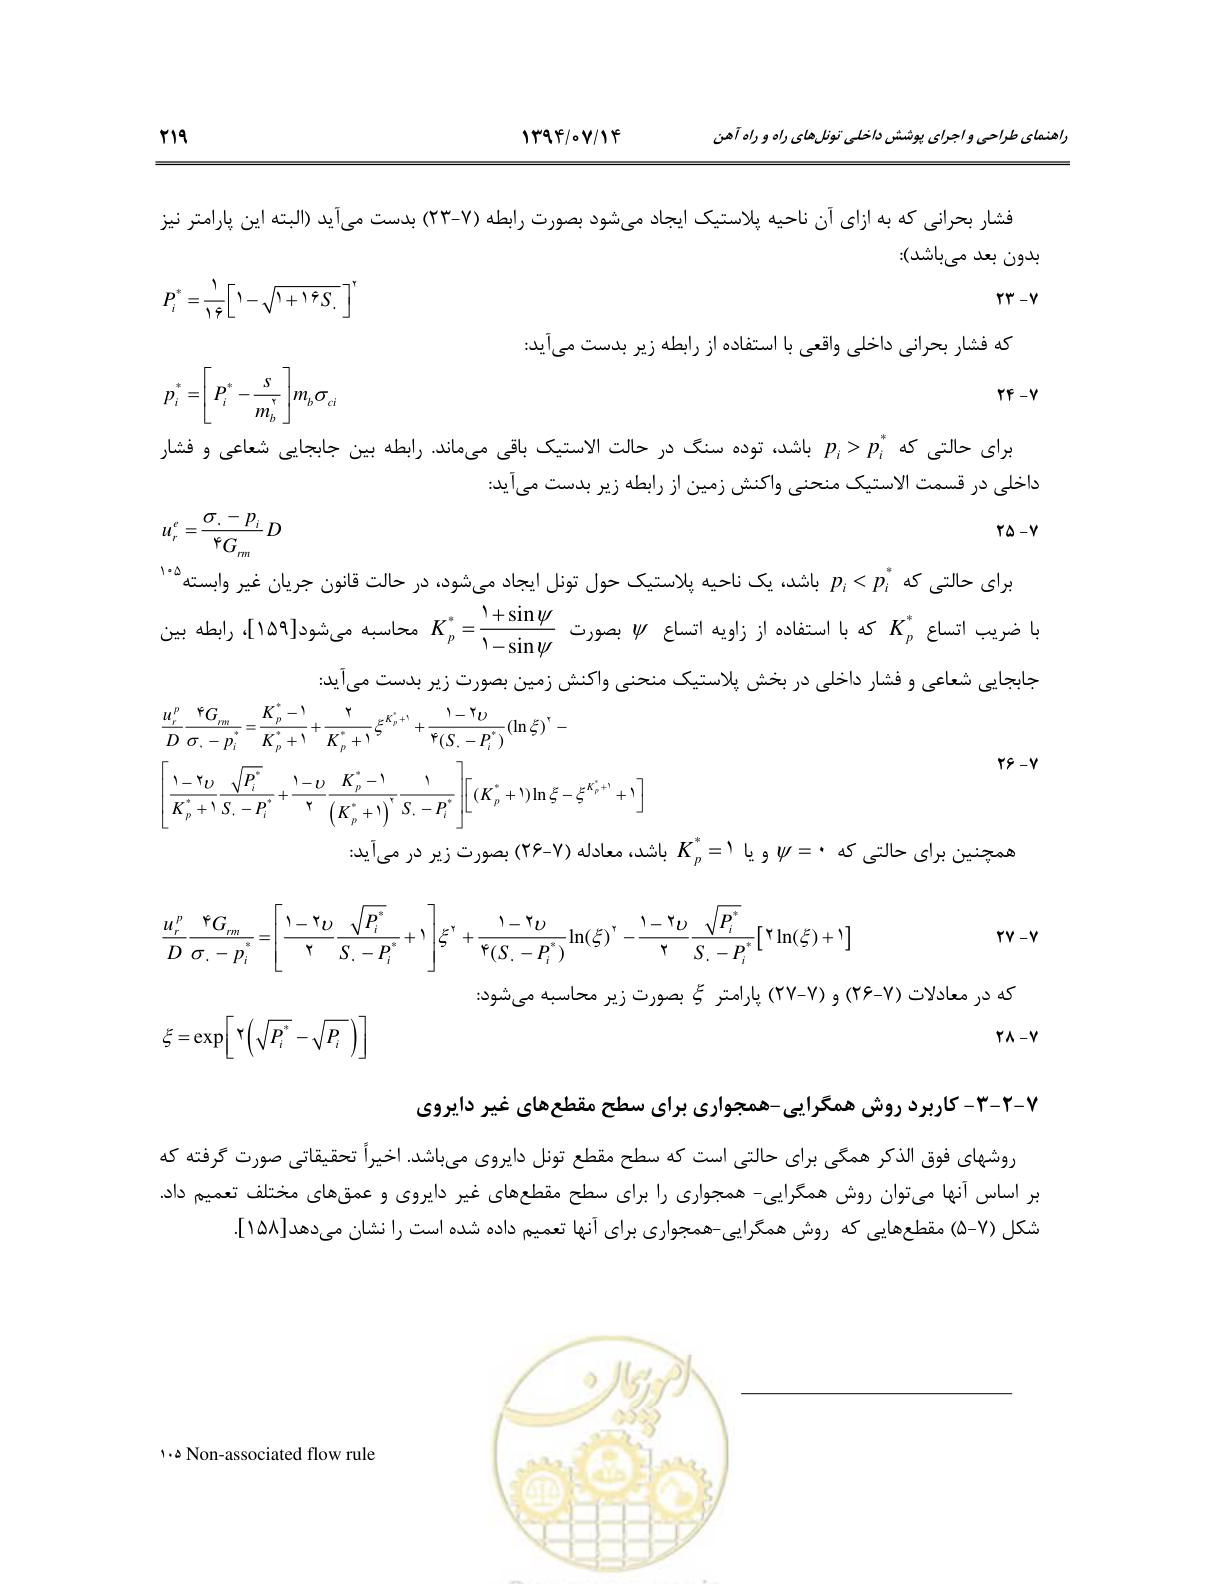 راهنمای طراحی و اجرای پوشش داخلی تونل‌های راه و راه آهن ۱۳۹۴/۰۷/۱۴ ۲۱۹
فشار بحرانی که به ازای آن ناحیه پلاستیک ایجاد می‌شود بصورت رابطه (۷-۲۳) بدست می‌آید (البته این پارامتر نیز
بدون بعد می‌باشد):
۷- ۲۳ P_i^* = ۱/۱۶ [۱ − √(۱+۱۶S_۰)]^۲
که فشار بحرانی داخلی واقعی با استفاده از رابطه زیر بدست می‌آید:
۷- ۲۴ p_i^* = [P_i^* − s/m_b^۲] m_b σ_ci
برای حالتی که p_i > p_i^* باشد، توده سنگ در حالت الاستیک باقی می‌ماند. رابطه بین جابجایی شعاعی و فشار
داخلی در قسمت الاستیک منحنی واکنش زمین از رابطه زیر بدست می‌آید:
۷- ۲۵ u_r^e = (σ_۰ − p_i)/(۴G_rm) D
برای حالتی که p_i < p_i^* باشد، یک ناحیه پلاستیک حول تونل ایجاد می‌شود، در حالت قانون جریان غیر وابسته۱۰۵
با ضریب اتساع K_p^* که با استفاده از زاویه اتساع ψ بصورت K_p^* = (۱+sinψ)/(۱−sinψ) محاسبه می‌شود[۱۵۹]، رابطه بین
جابجایی شعاعی و فشار داخلی در بخش پلاستیک منحنی واکنش زمین بصورت زیر بدست می‌آید:
u_r^p/D ۴G_rm/(σ_۰ − p_i^*) = (K_p^* −۱)/(K_p^* +۱) + ۲/(K_p^* +۱) ξ^(K_p^*+۱) + (۱−۲υ)/(۴(S_۰ − P_i^*)) (ln ξ)^۲ −
۷- ۲۶ [(۱−۲υ)/(K_p^* +۱) √(P_i^*)/(S_۰ − P_i^*) + (۱−υ)/۲ (K_p^* −۱)/(K_p^* +۱)^۲ ۱/(S_۰ − P_i^*)] [(K_p^* +۱) ln ξ − ξ^(K_p^*+۱) +۱]
همچنین برای حالتی که ψ = ۰ و یا K_p^* = ۱ باشد، معادله (۷-۲۶) بصورت زیر در می‌آید:
۷- ۲۷ u_r^p/D ۴G_rm/(σ_۰ − p_i^*) = [(۱−۲υ)/۲ √(P_i^*)/(S_۰ − P_i^*) +۱] ξ^۲ + (۱−۲υ)/(۴(S_۰ − P_i^*)) ln(ξ)^۲ − (۱−۲υ)/۲ √(P_i^*)/(S_۰ − P_i^*) [۲ln(ξ)+۱]
که در معادلات (۷-۲۶) و (۷-۲۷) پارامتر ξ بصورت زیر محاسبه می‌شود:
۷- ۲۸ ξ = exp[۲(√(P_i^*) − √(P_i))]
۷-۲-۳- کاربرد روش همگرایی-همجواری برای سطح مقطع‌های غیر دایروی
روشهای فوق الذکر همگی برای حالتی است که سطح مقطع تونل دایروی می‌باشد. اخیراً تحقیقاتی صورت گرفته که
بر اساس آنها می‌توان روش همگرایی- همجواری را برای سطح مقطع‌های غیر دایروی و عمق‌های مختلف تعمیم داد.
شکل (۷-۵) مقطع‌هایی که روش همگرایی-همجواری برای آنها تعمیم داده شده است را نشان می‌دهد[۱۵۸].
امور پیمان
۱۰۵ Non-associated flow rule